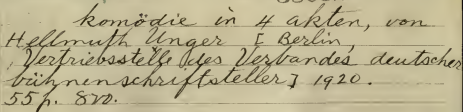 komödie in 4 akten, von
Hellmuth Unger [Berlin,
Vertriebsstelle des Verbandes deutscher
bühnenschriftsteller] 1920.
55 p. 8vo.